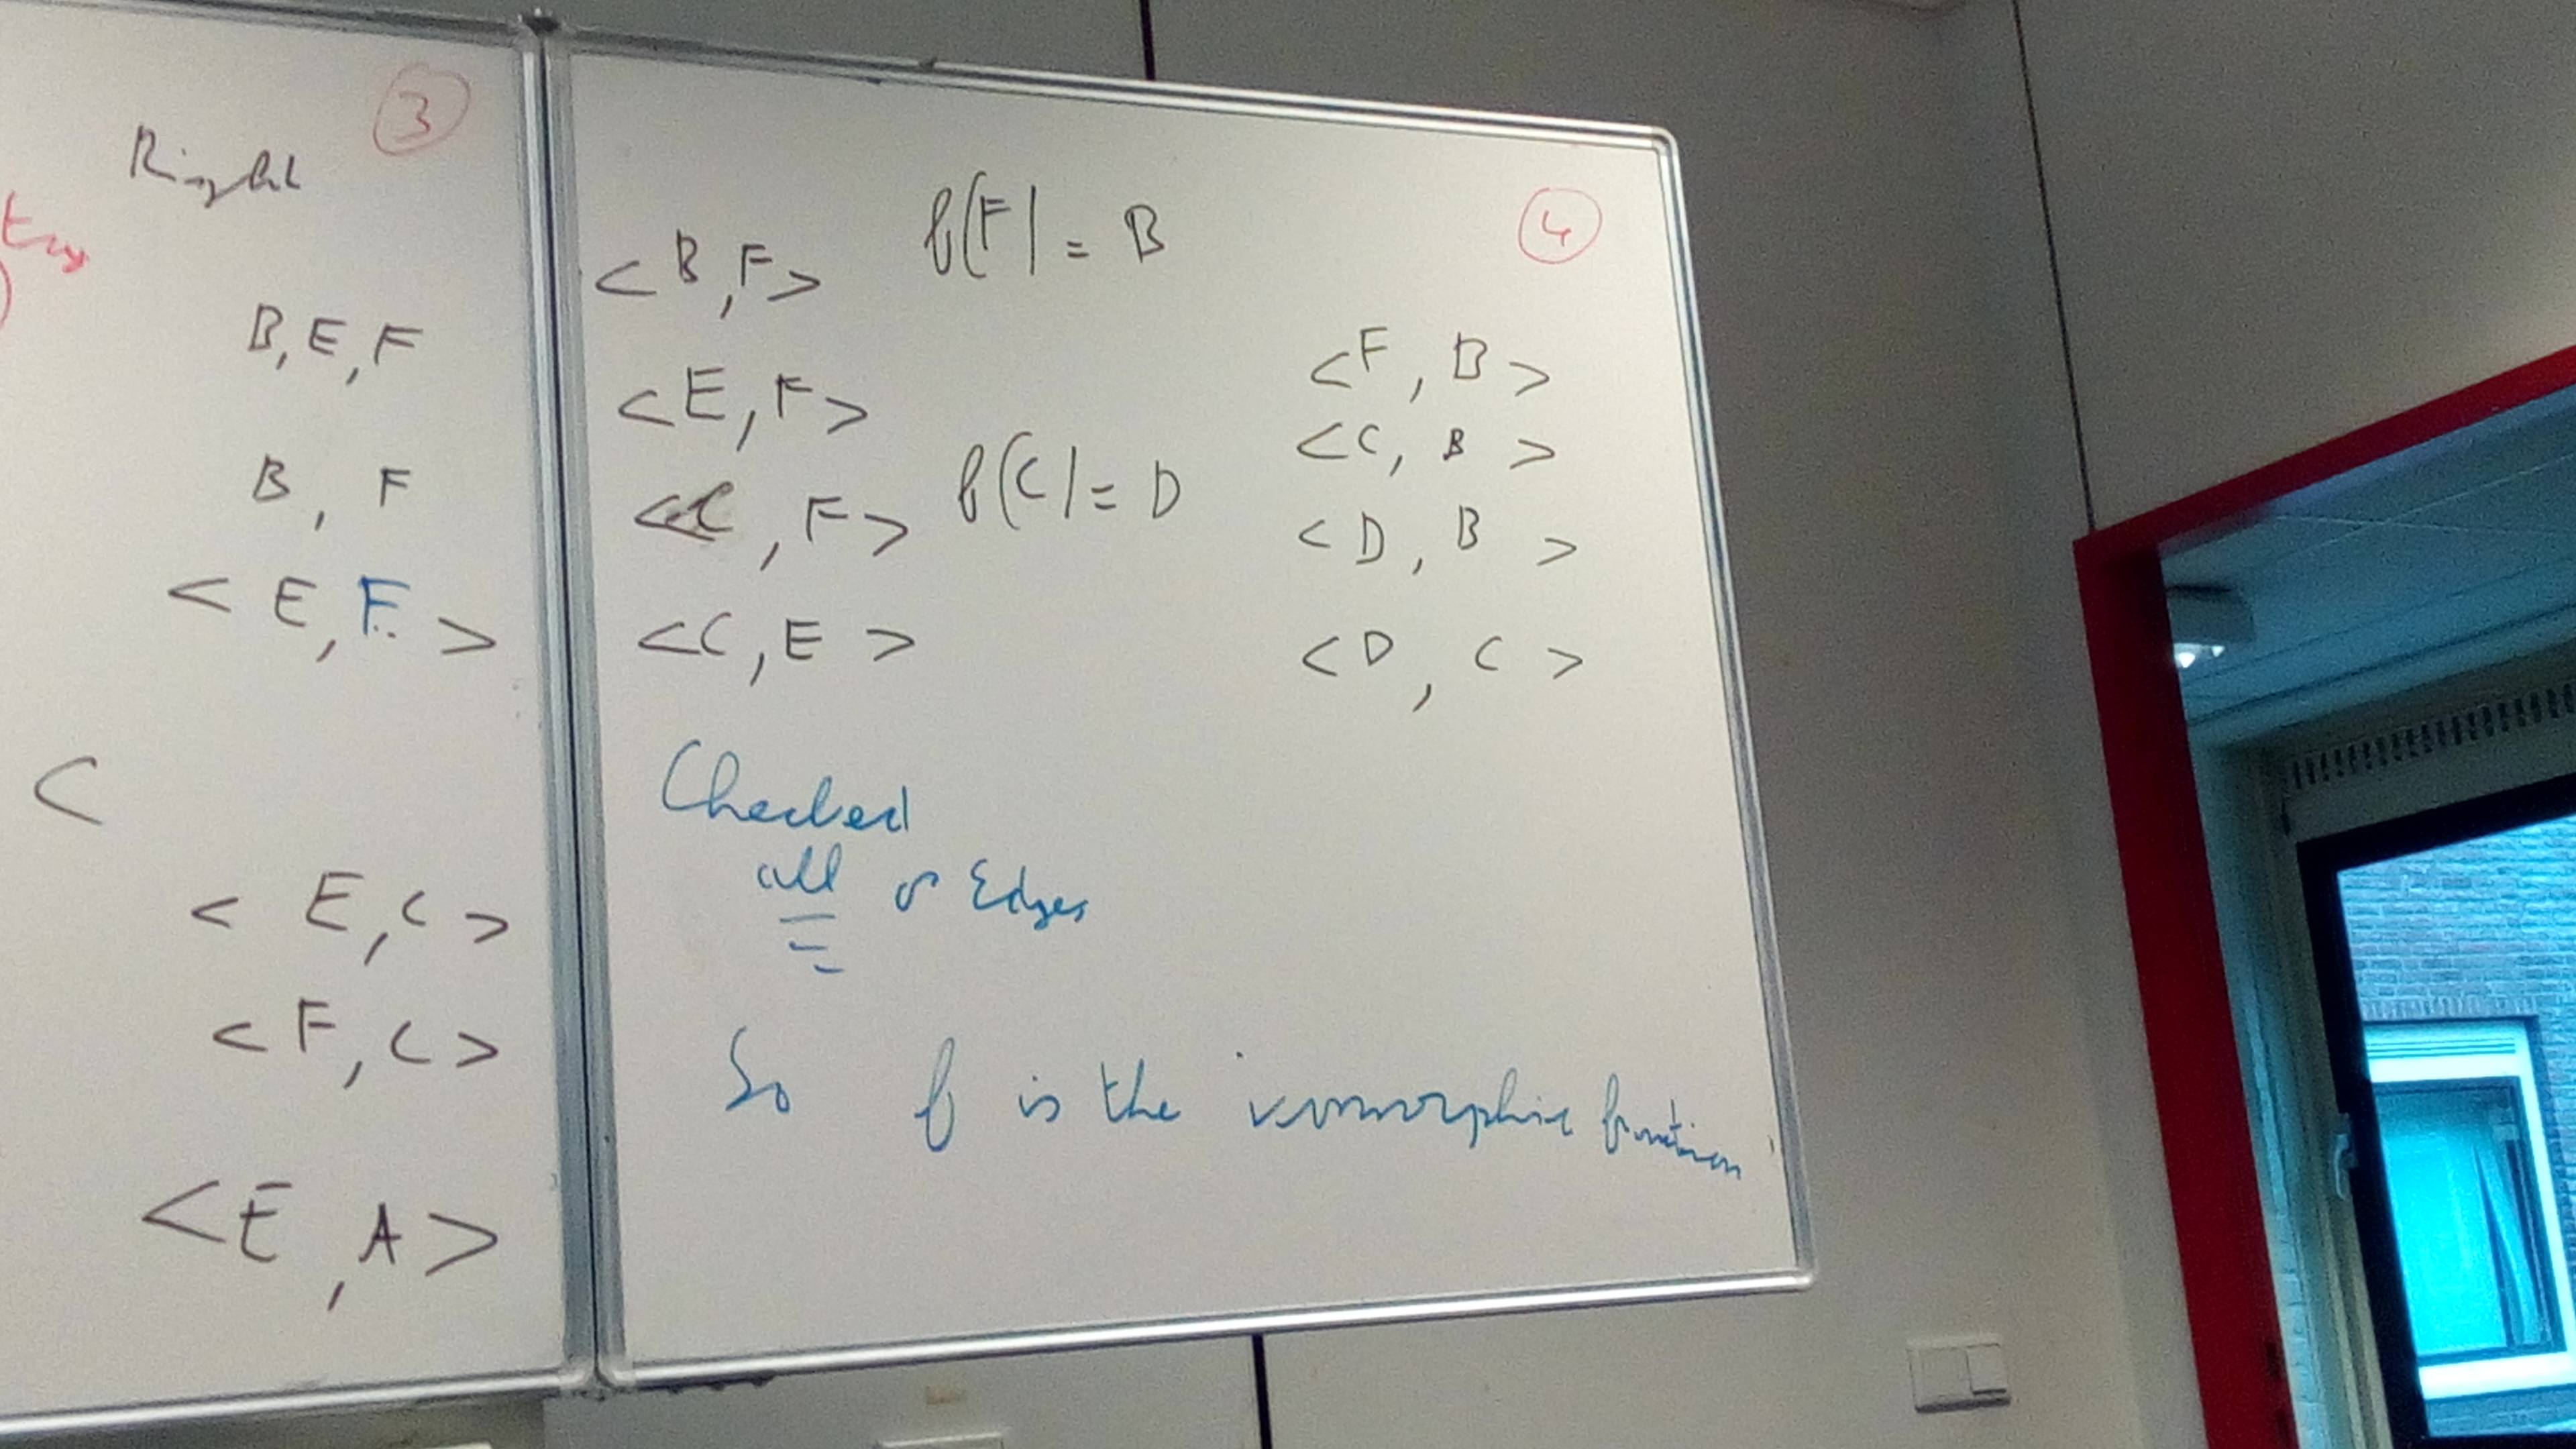 3
Right
try
B, E, F
B, F
< E, F >
C
< E, C >
< F, C >
< E, A >
4
< B, F > f(F) = B
< F, B >
< E, F >
< C, B >
< C, F > f(C) = D
< D, B >
< C, E >
< D, C >
Checked
all Edges
So f is the isomorphic function